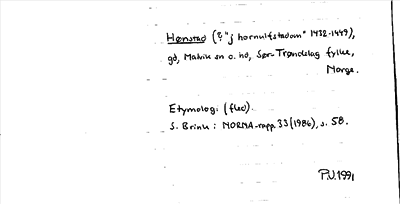 Hønstad (? "j hornulfstadom" 1432-1449),
gd, Malvik sn o. hd, Sør-Trøndelag fylke,
Norge.
Etymologi (fled).
S. Brink: NORNA-rapp. 33 (1986), s. 58.
P.V. 1991